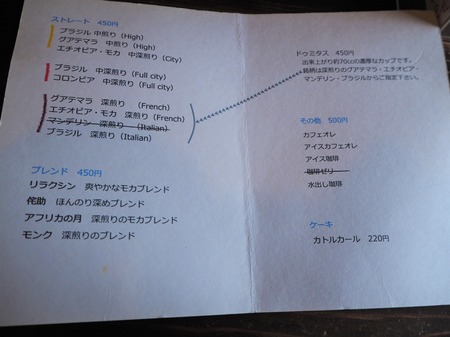 ストレート 450円
ブラジル 中煎り (High)
グアテマラ 中煎り (High)
エチオピア・モカ 中深煎り (City)
ブラジル 中深煎り (Full city)
コロンビア 中深煎り (Full city)
グアテマラ 深煎り (French)
エチオピア・モカ 深煎り (French)
マンデリン 深煎り (Italian)
ブラジル 深煎り (Italian)
ブレンド 450円
リラクシン 爽やかなモカブレンド
侘助 ほんのり深めブレンド
アフリカの月 深煎りのモカブレンド
モンク 深煎りのブレンド
ドゥミタス 450円
出来上がり約70ccの濃厚なカップです。
銘柄は深煎りのグアテマラ・エチオピア・
マンデリン・ブラジルからご指定下さい。
その他 500円
カフェオレ
アイスカフェオレ
アイス珈琲
珈琲ゼリー
水出し珈琲
ケーキ
カトルカール 220円